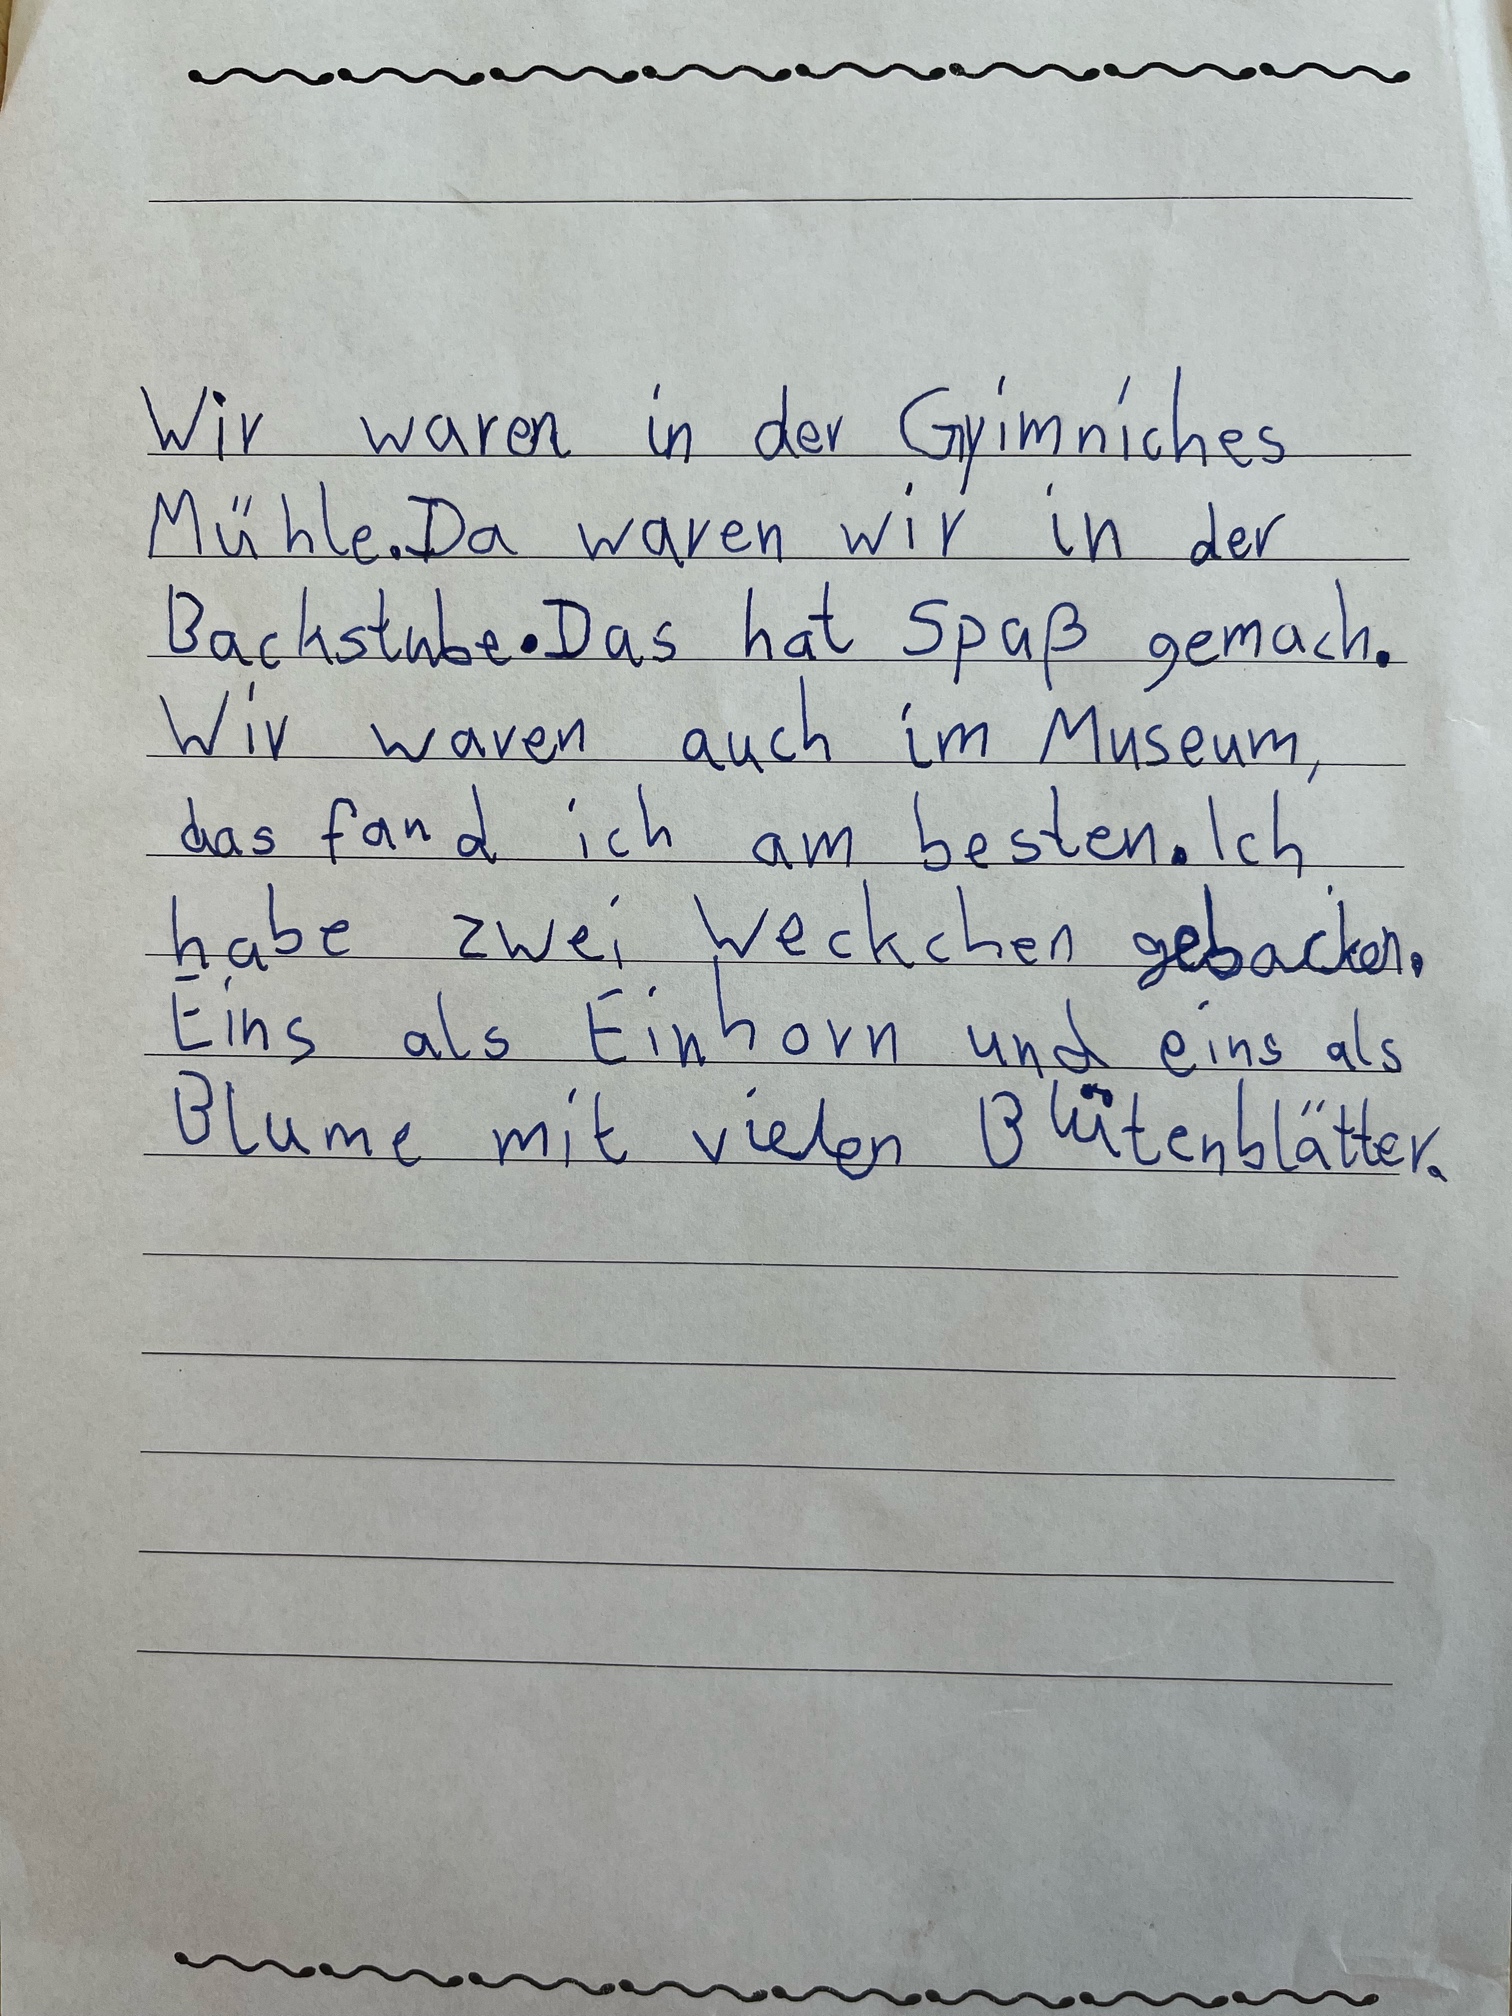 Wir waren in der Gyimniches
Mühle. Da waren wir in der
Backstube. Das hat Spaß gemach.
Wir waren auch im Museum,
das fand ich am besten. Ich
habe zwei Weckchen gebacken.
Eins als Einhorn und eins als
Blume mit vielen Blütenblätter.